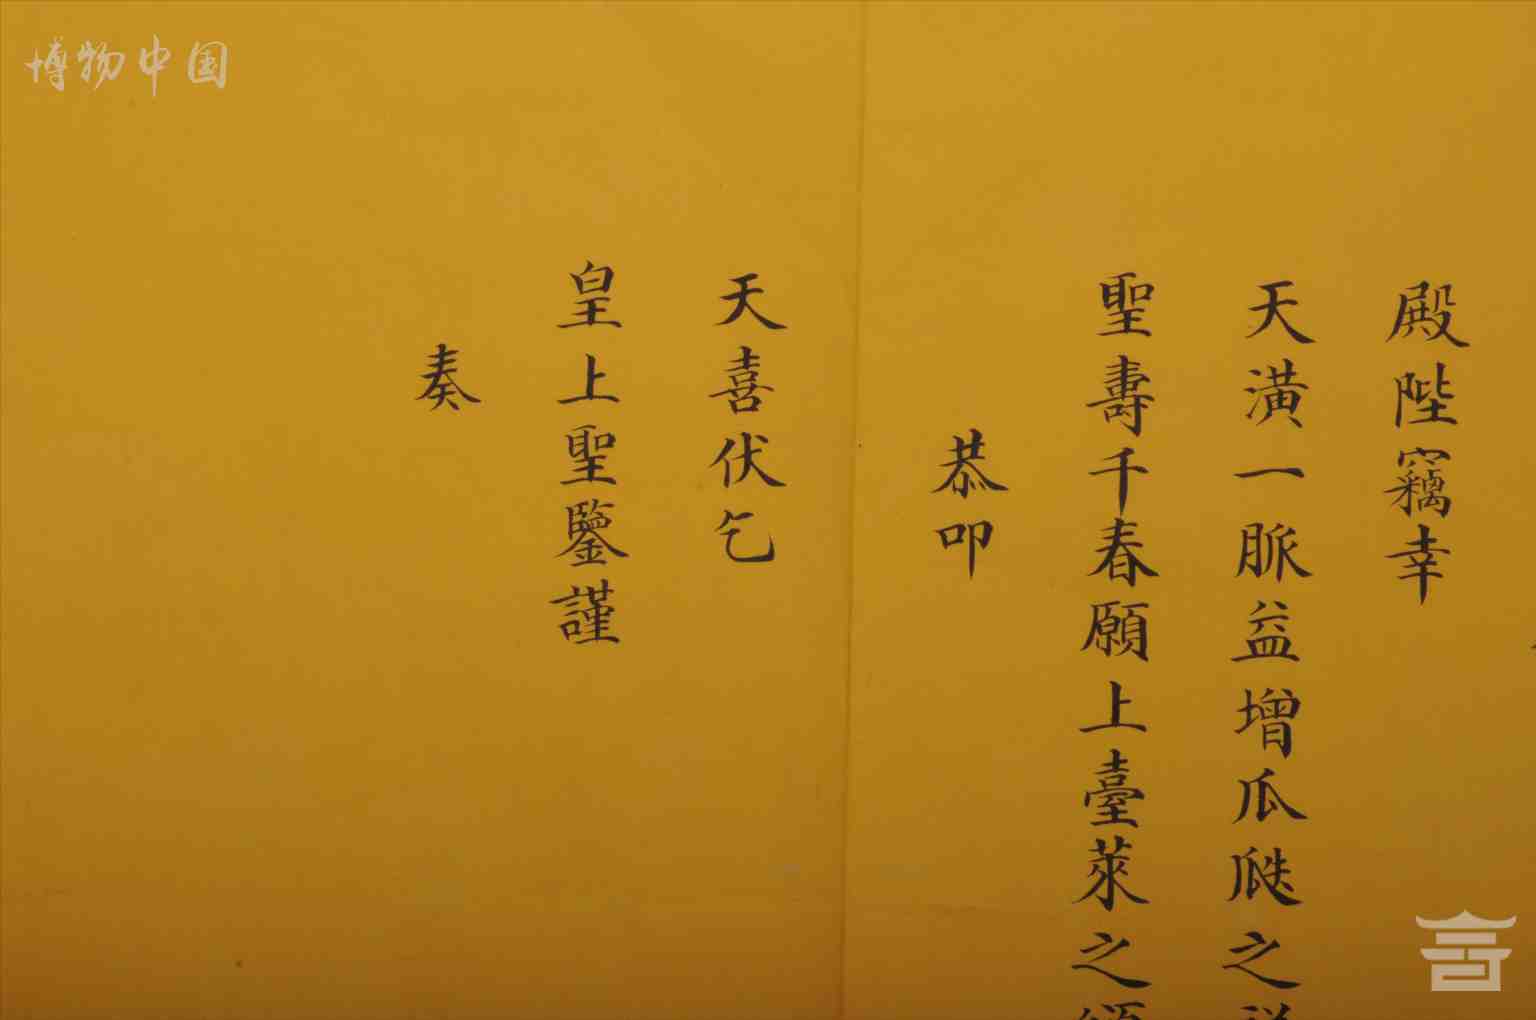 博物中国
殿陛竊幸
天潢一脈益增瓜瓞之
聖壽千春願上臺萊之頌
恭叩
天喜伏乞
皇上聖鑒謹
奏